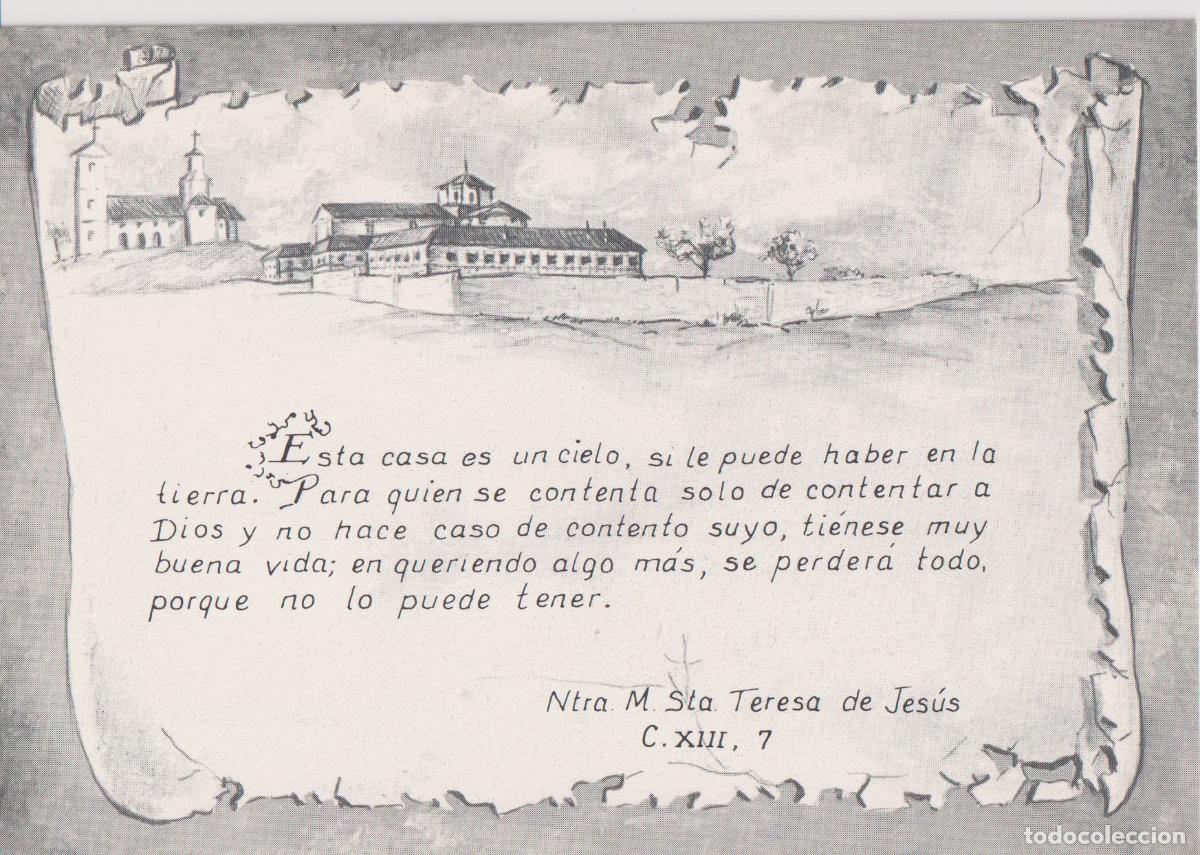 Esta casa es un cielo, si le puede haber en la
tierra. Para quien se contenta solo de contentar a
Dios y no hace caso de contento suyo, tiénese muy
buena vida; en queriendo algo más, se perderá todo,
porque no lo puede tener.
Ntra. M. Sta. Teresa de Jesús
C. XIII, 7
todocoleccion